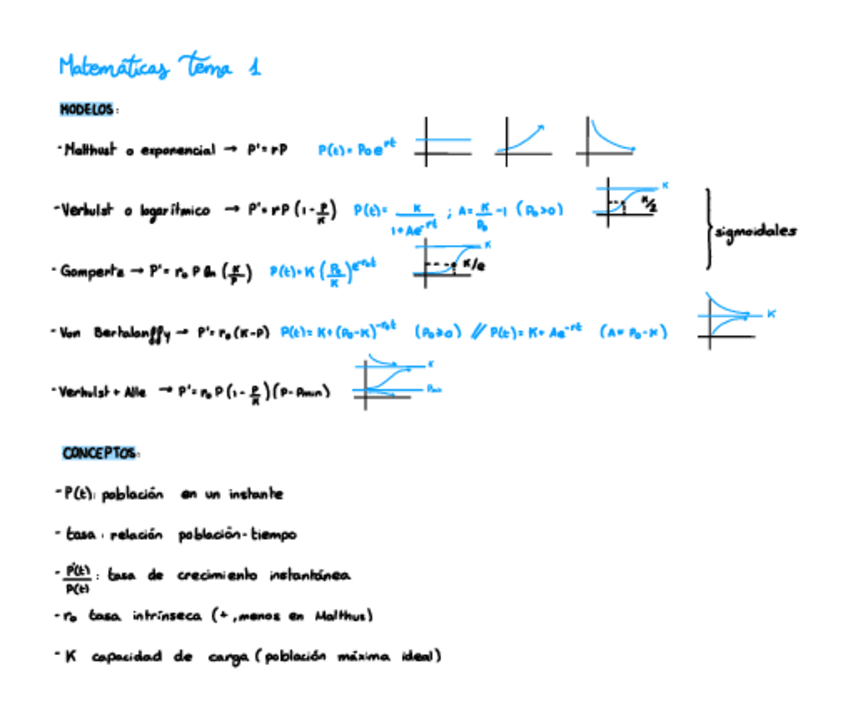 Matemáticas Tema 1
MODELOS:
- Malthust o exponencial → P'=rP P(t)= P₀e^rt
- Verhulst o logarítmico → P'=rP (1-P/K) P(t)= K/(1+Ae^-rt) ; A= K/P₀ -1 (P₀>0) K K/2
sigmoidales
- Gompertz → P'= r₀ P ln (K/P) P(t)=K (P₀/K)^e^-r₀t K K/e
- Von Bertalanffy → P'= r₀ (K-P) P(t)= K+(P₀-K)^-r₀t (P₀≥0) // P(t)= K+ Ae^-rt (A= P₀-K) K
- Verhulst + Alle → P'= r₀ P (1- P/K) (P- Pmin) K Pmin
CONCEPTOS:
- P(t): población en un instante
- tasa: relación población-tiempo
- P'(t)/P(t) : tasa de crecimiento instantánea
- r₀ tasa intrínseca (+, menos en Malthus)
- K capacidad de carga (población máxima ideal)